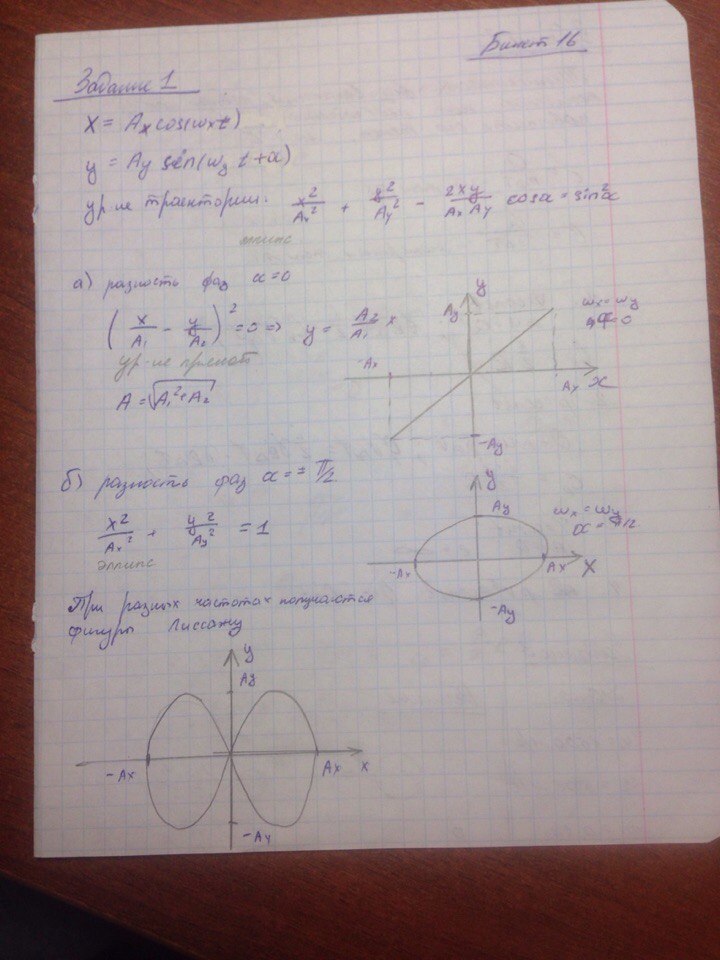 Билет 16
Задание 1
x = Ax cos(ωxt)
y = Ay sin(ωy t+α)
ур-ие траектории. x²/Ax² + y²/Ay² − 2xy/AxAy cosα = sin²α
эллипс
а) разность фаз α=0
(x/A₁ − y/A₂)² = 0 => y = A₂/A₁ x
ур-ие прямой
A = √A₁²+A₂
y
Ay
ωx = ωy
-Ax
Ax
x
-Ay
б) разность фаз α = ± π/2
x²/Ax² + y²/Ay² = 1
эллипс
y
Ay
ωx = ωy
α = π/2
-Ax
Ax
x
-Ay
При разных частотах получаются
фигуры Лиссажу
y
Ay
-Ax
Ax
x
-Ay